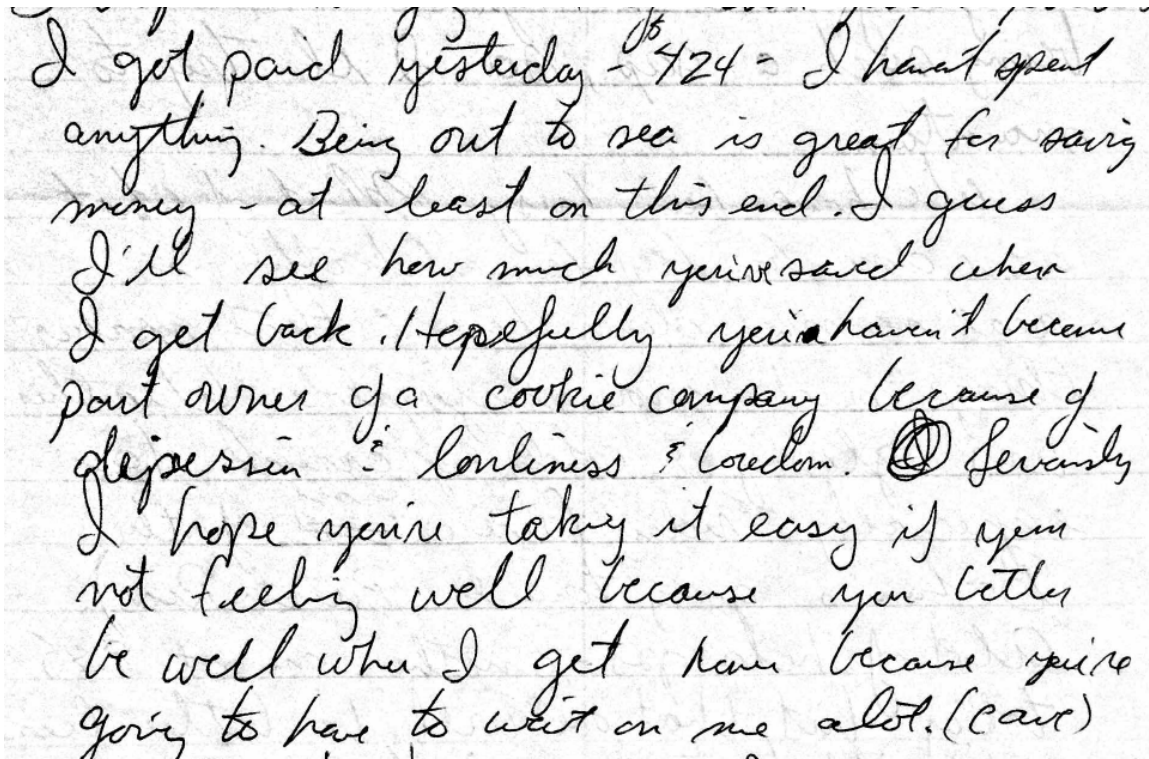 I got paid yesterday - $424 - I havent spent
anything. Being out to sea is great for saving
money - at least on this end. I guess
I'll see how much you've saved when
I get back. Hopefully you haven't become
part owner of a cookie company because of
depression & lonliness & boredom. Seriously
I hope you're taking it easy if your
not feeling well because you better
be well when I get home because you're
going to have to wait on me alot. (care)